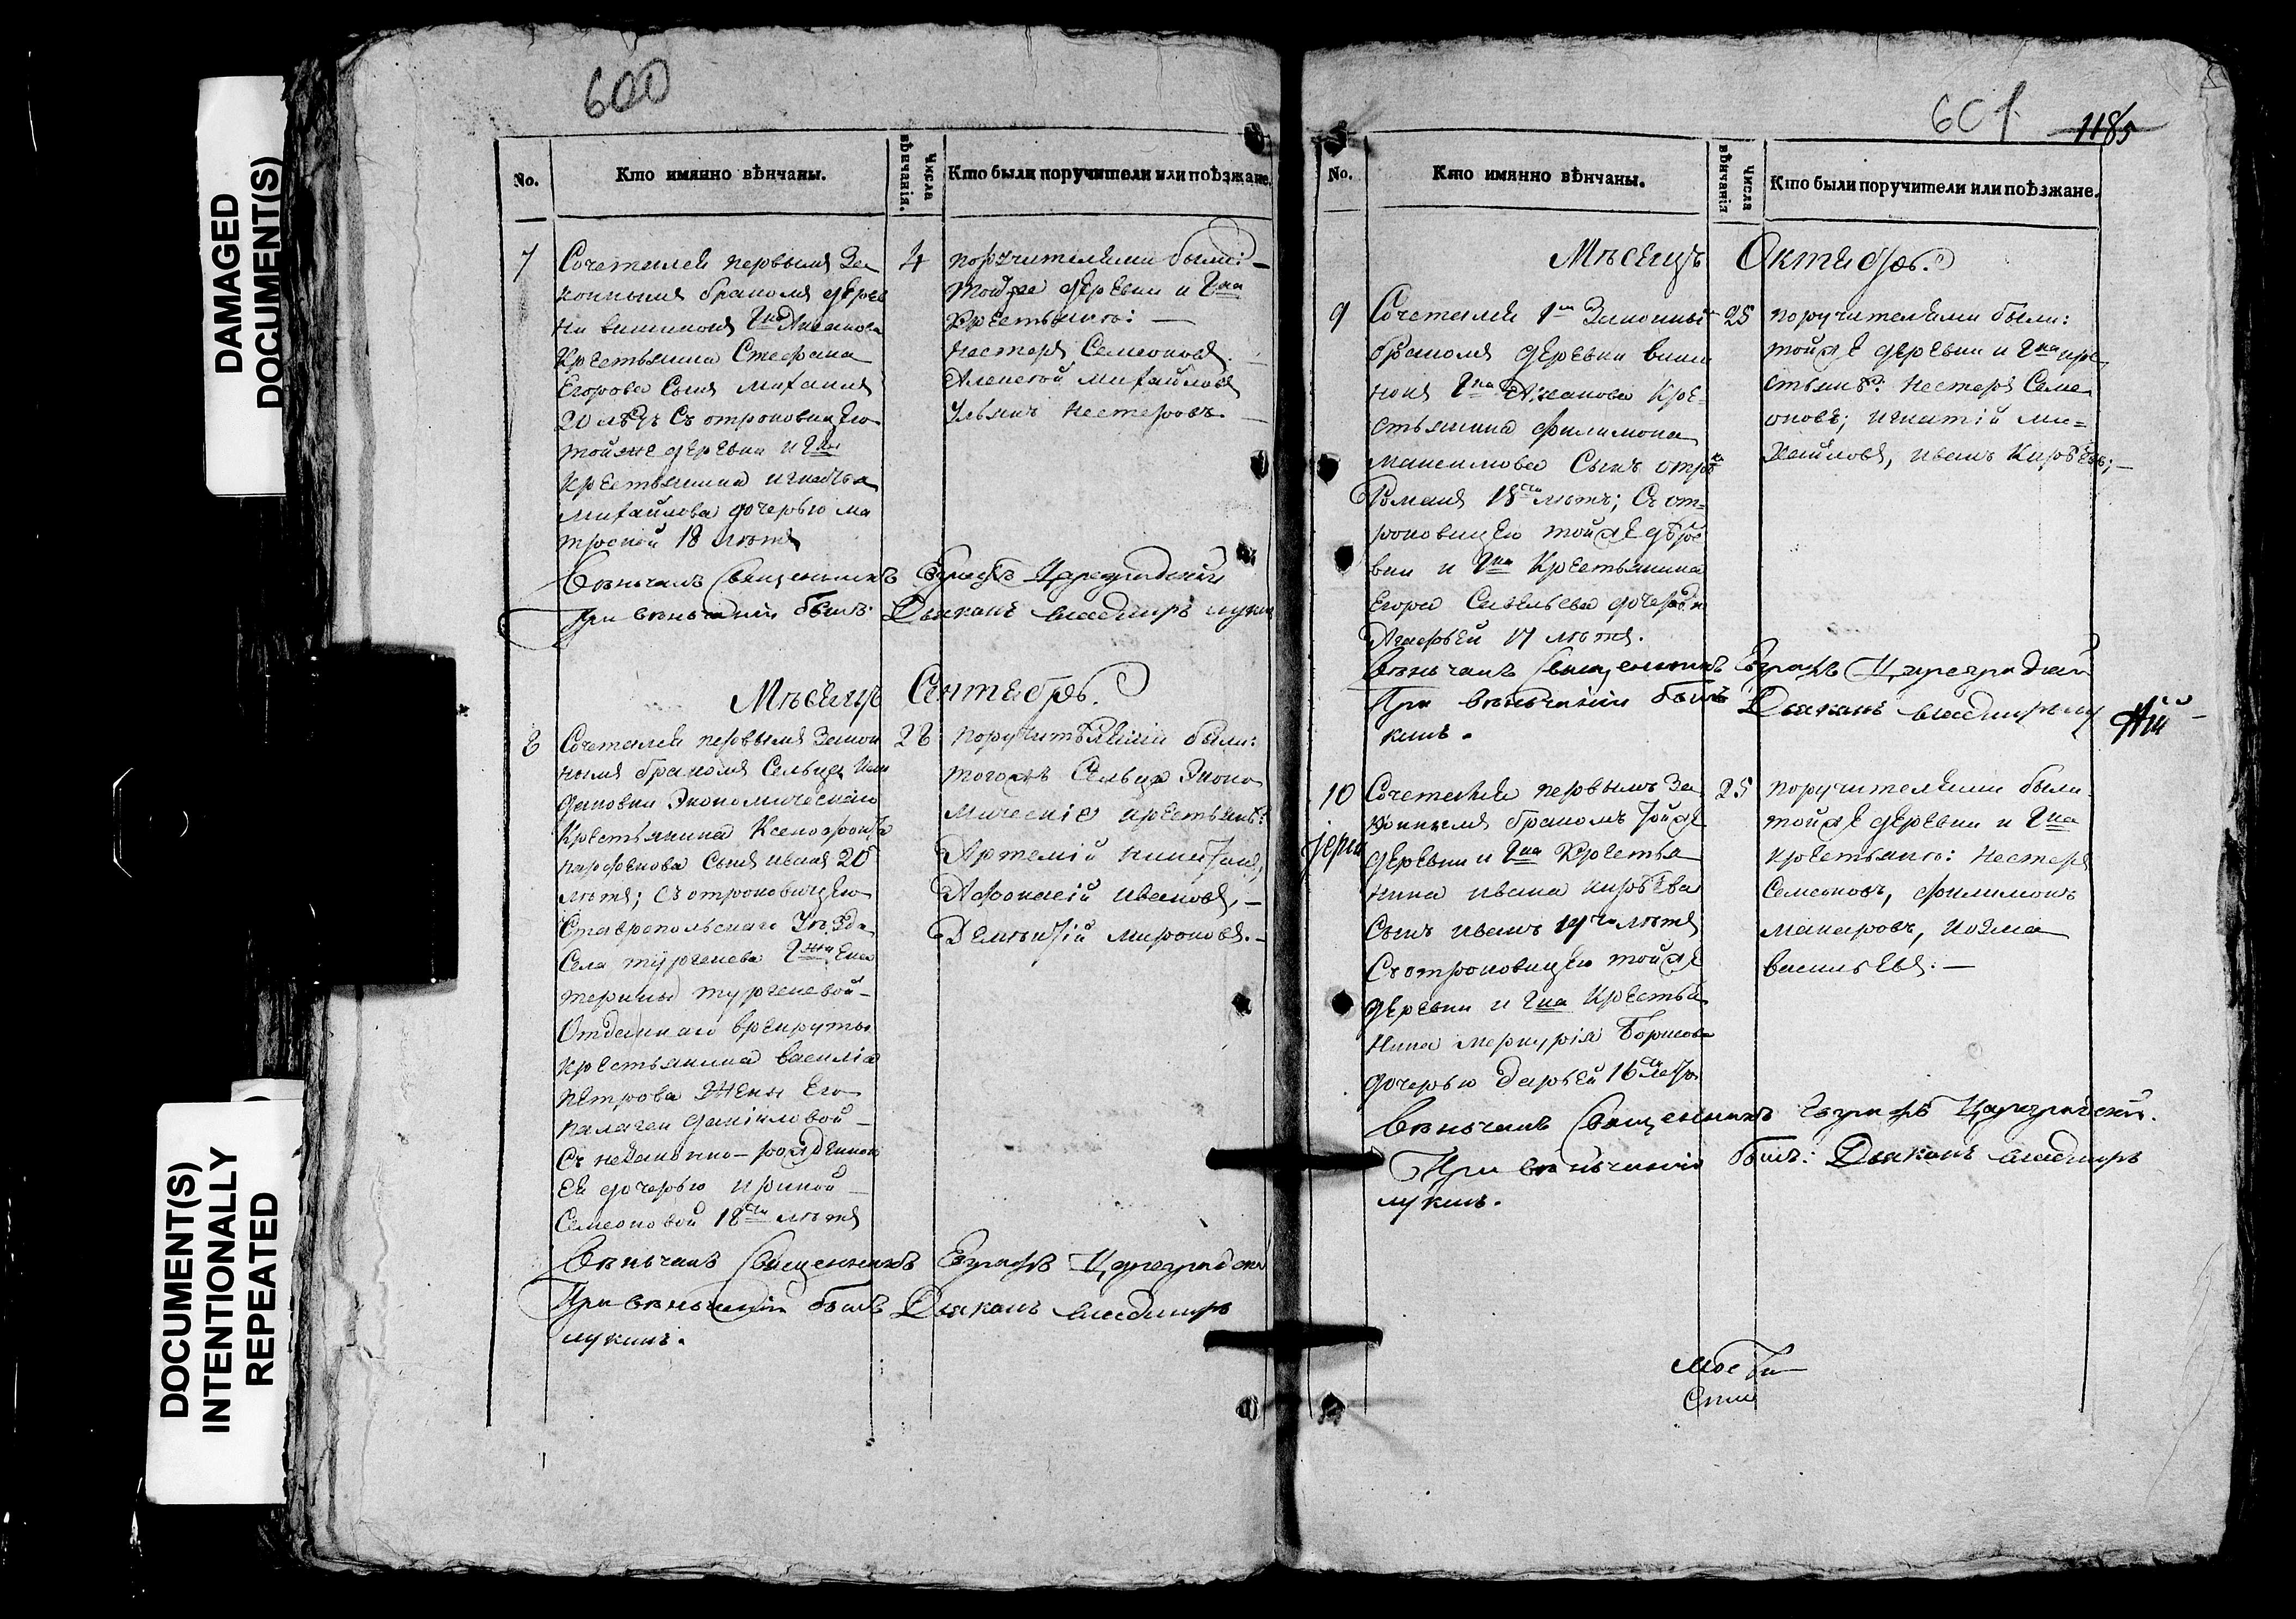 DAMAGED
DOCUMENT(S)
DOCUMENT(S)
INTENTIONALLY
REPEATED
600
No.
Кто имянно вѣнчаны.
Числа
вѣнчанія.
Кто были поручители или поѣзжане.
7
Сочетался первымъ За
коннымъ бракомъ дерев
ни
Крестьянина Стефана
Егорова Сынъ михаилъ
20 лѣтъ Съ отроковицею
тойже деревни и Гна
Крестьянина игнатья
михайлова дочерью ма
троной 18 лѣтъ
4
поручителями были:
тойже деревни и Гна
Крестьяне:
Нестеръ Семеоновъ
Алексей михайловъ
Ульянъ Нестеровъ
Вѣнчалъ Священникъ Царeградскій
При вѣнчаніи былъ Дьяконъ владимиръ лукин
Мѣсяцъ Сентябрь.
8
Сочетался первымъ Закон
нымъ бракомъ Сельца
Экономическаго
Крестьянина Ксенофонта
парфенова Сынъ иванъ 20
лѣтъ; съ отроковицею
Ставропольскаго Уѣзда
Села тургенева Гжи Ека
терины тургеневой
Отданнаго врекруты
Крестьянина василія
петрова Жены Его
палагеи даніиловой
Съ незаконно-рожденной
Ея дочерью ириной
Семеоновой 18 лѣтъ
28
поручителями были:
тогожъ Сельца Эконо
мическіе крестьяне:
Артемій
Афонасій ивановъ,
Дементій мироновъ.
Вѣнчалъ Священникъ Царeградскій
При вѣнчаніи былъ Дьяконъ владимиръ
лукинъ.
601
1185
No.
Кто имянно вѣнчаны.
Числа
вѣнчанія
Кто были поручители или поѣзжане.
Мѣсяцъ Октябрь.
9
Сочетался 1мъ Законным
бракомъ деревни
Кре=
стьянина филимона
Сынъ
Романъ 18 лѣтъ; Съ от=
роковицею тойже дере
вни и Гна Крестьянина
Егора Савельева дочерью
Агафьей 17 лѣтъ.
25
поручителями были:
тойже деревни и Гна кре
стьяне: Нестеръ Семе
оновъ; игнатій ми=
хайловъ, иванъ
Вѣнчалъ Священникъ Царeградскій
При вѣнчаніи былъ Дьяконъ владимиръ лу
кинъ.
10
Сочетался первымъ За
коннымъ бракомъ тойже
деревни и Гна Крестья
нина ивана
Сынъ иванъ 19 лѣтъ
Съ отроковицею тойже
деревни и Гна Крестья
нина меркурія Борисова
дочерью дарьей 16 лѣтъ
25
поручителями были
тойже деревни и Гна
крестьяне: Нестеръ
Семеоновъ, филимонъ
макаровъ, козма
васильевъ.
Вѣнчалъ Священникъ Царeградскій.
При вѣнчаніи былъ: Дьяконъ владимиръ
лукинъ.